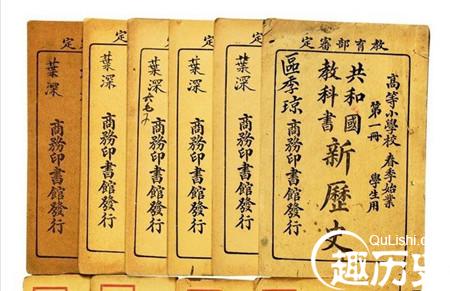 教育部審定
高等小學校 春季始業
第一冊 學生用
共和國
教科書
新歷
區季琼
商務印書館發行
葉深
商務印書館發行
定
葉深
商務印書館發行
定
葉深
商務印書館發行
定
葉深
商務印書館發行
定
葉深
商務印書館發行
QuLishi.c
趣历史